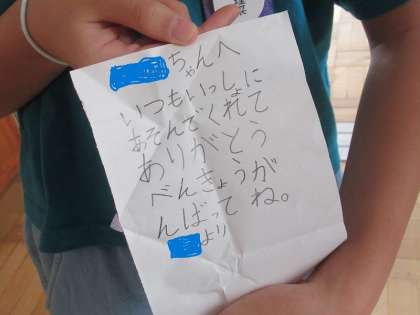 ちゃんへ
いつもいっしょに
あそんでくれて
ありがとう
べんきょうが
んばってね。
より